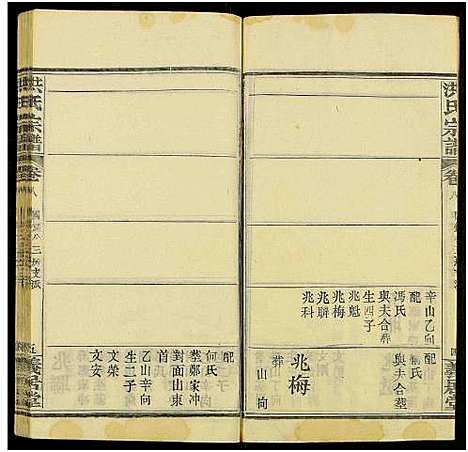 洪氏宗譜
卷八
義居堂
辛山乙向
配
馮氏
與夫合葬
生四子
兆魁
兆梅
兆聯
兆科
配
氏
與夫合塟
兆梅
葬
山
向
配
何氏
塟鄭家冲
對面山東
乙山辛向
生二子
文榮
文安
洪氏宗譜
卷八
三
五
義居堂